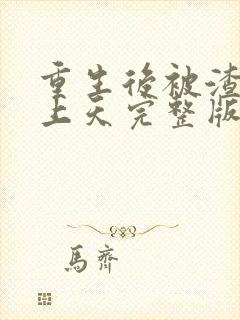 重生後被渣
上天完整版
馬齊